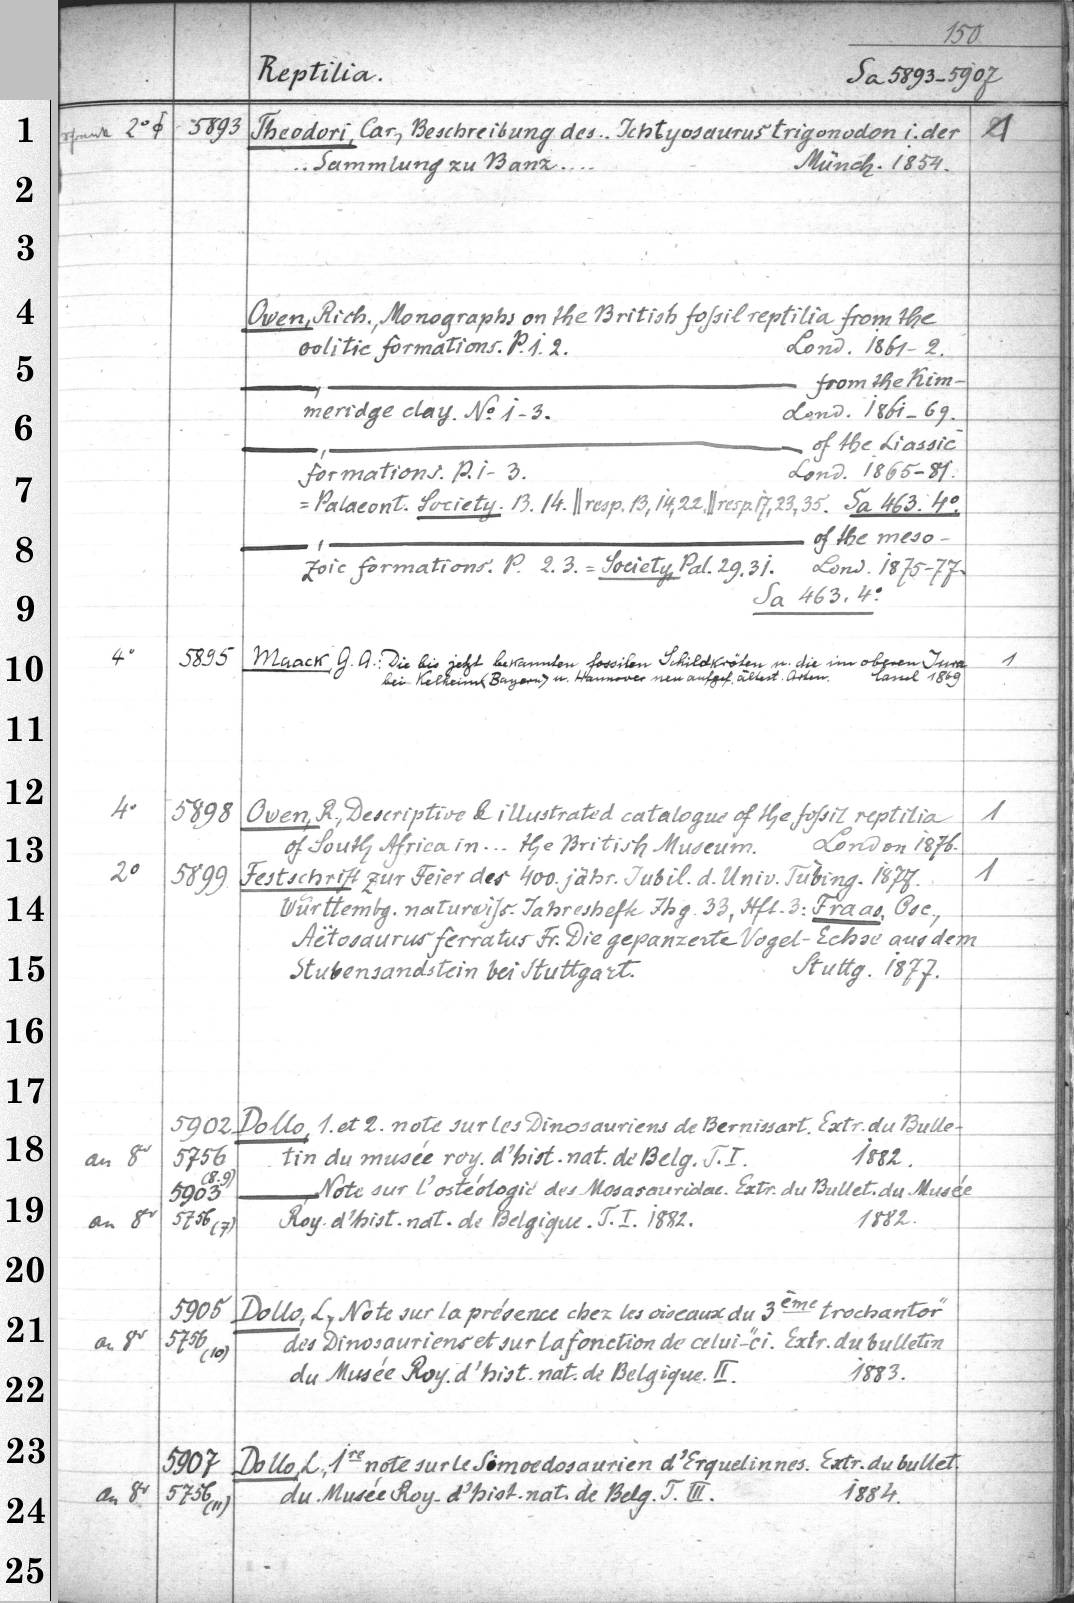 150
Reptilia. Sa 5893-5907
1 2° 5893 Theodori, Car., Beschreibung des.. Ichtyosaurus trigonodon i. der 1
..Sammlung zu Banz.... Münch. 1854.
2
3
4 Owen, Rich., Monographs on the British fossil reptilia from the
oolitic formations. P. 1. 2. Lond. 1861-2.
5 ———, ——— from the Kim-
meridge clay. No 1-3. Lond. 1861-69.
6 ———, ——— of the Liassic
formations. P. 1-3. Lond. 1865-81.
7 = Palaeont. Society. 13. 14. || resp. 13, 14, 22, || resp. 17, 23, 35. Sa 463. 4°.
8 ———, ——— of the meso-
zoic formations. P. 2.3. = Society, Pal. 29. 31. Lond. 1875-77.
9 Sa 463. 4°.
10 4° 5895 Maack, G. A.: Die bis jetzt bekannten fossilen Schildkröten u. die im oberen Jura 1
bei Kelheim (Bayern) u. Hannover neu aufgef. ältest. Arten. Cassel 1869
11
12 4° 5898 Owen, R., Descriptive & illustrated catalogue of the fossil reptilia 1
13 of South Africa in... the British Museum. London 1876.
2° 5899 Festschrift zur Feier der 400. jähr. Jubil. d. Univ. Tübing. 1877. 1
14 Württembg. naturwiss. Jahreshefte Jhg. 33, Hft. 3: Fraas, Osc.,
Aëtosaurus ferratus Fr. Die gepanzerte Vogel-Echse aus dem
15 Stubensandstein bei Stuttgart. Stuttg. 1877.
16
17
5902 Dollo, 1. et 2. note sur les Dinosauriens de Bernissart. Extr. du Bulle-
18 an 8° 5756 (8.9) tin du musée roy. d'hist. nat. de Belg. T. I. 1882.
5903 ——— Note sur l'ostéologie des Mosasauridae. Extr. du Bullet. du Musée
19 an 8° 5756 (7) Roy. d'hist. nat. de Belgique. T. I. 1882. 1882.
20
5905 Dollo, L., Note sur la présence chez les oiseaux du 3ème „trochanter"
21 an 8° 5756 (10) des Dinosauriens et sur la fonction de celui-ci. Extr. du bulletin
22 du Musée Roy. d'hist. nat. de Belgique. II. 1883.
23 5907 Dollo, L., 1re note sur le Simoedosaurien d'Erquelinnes. Extr. du bullet.
24 an 8° 5756 (11) du Musée Roy. d'hist. nat. de Belg. T. III. 1884.
25